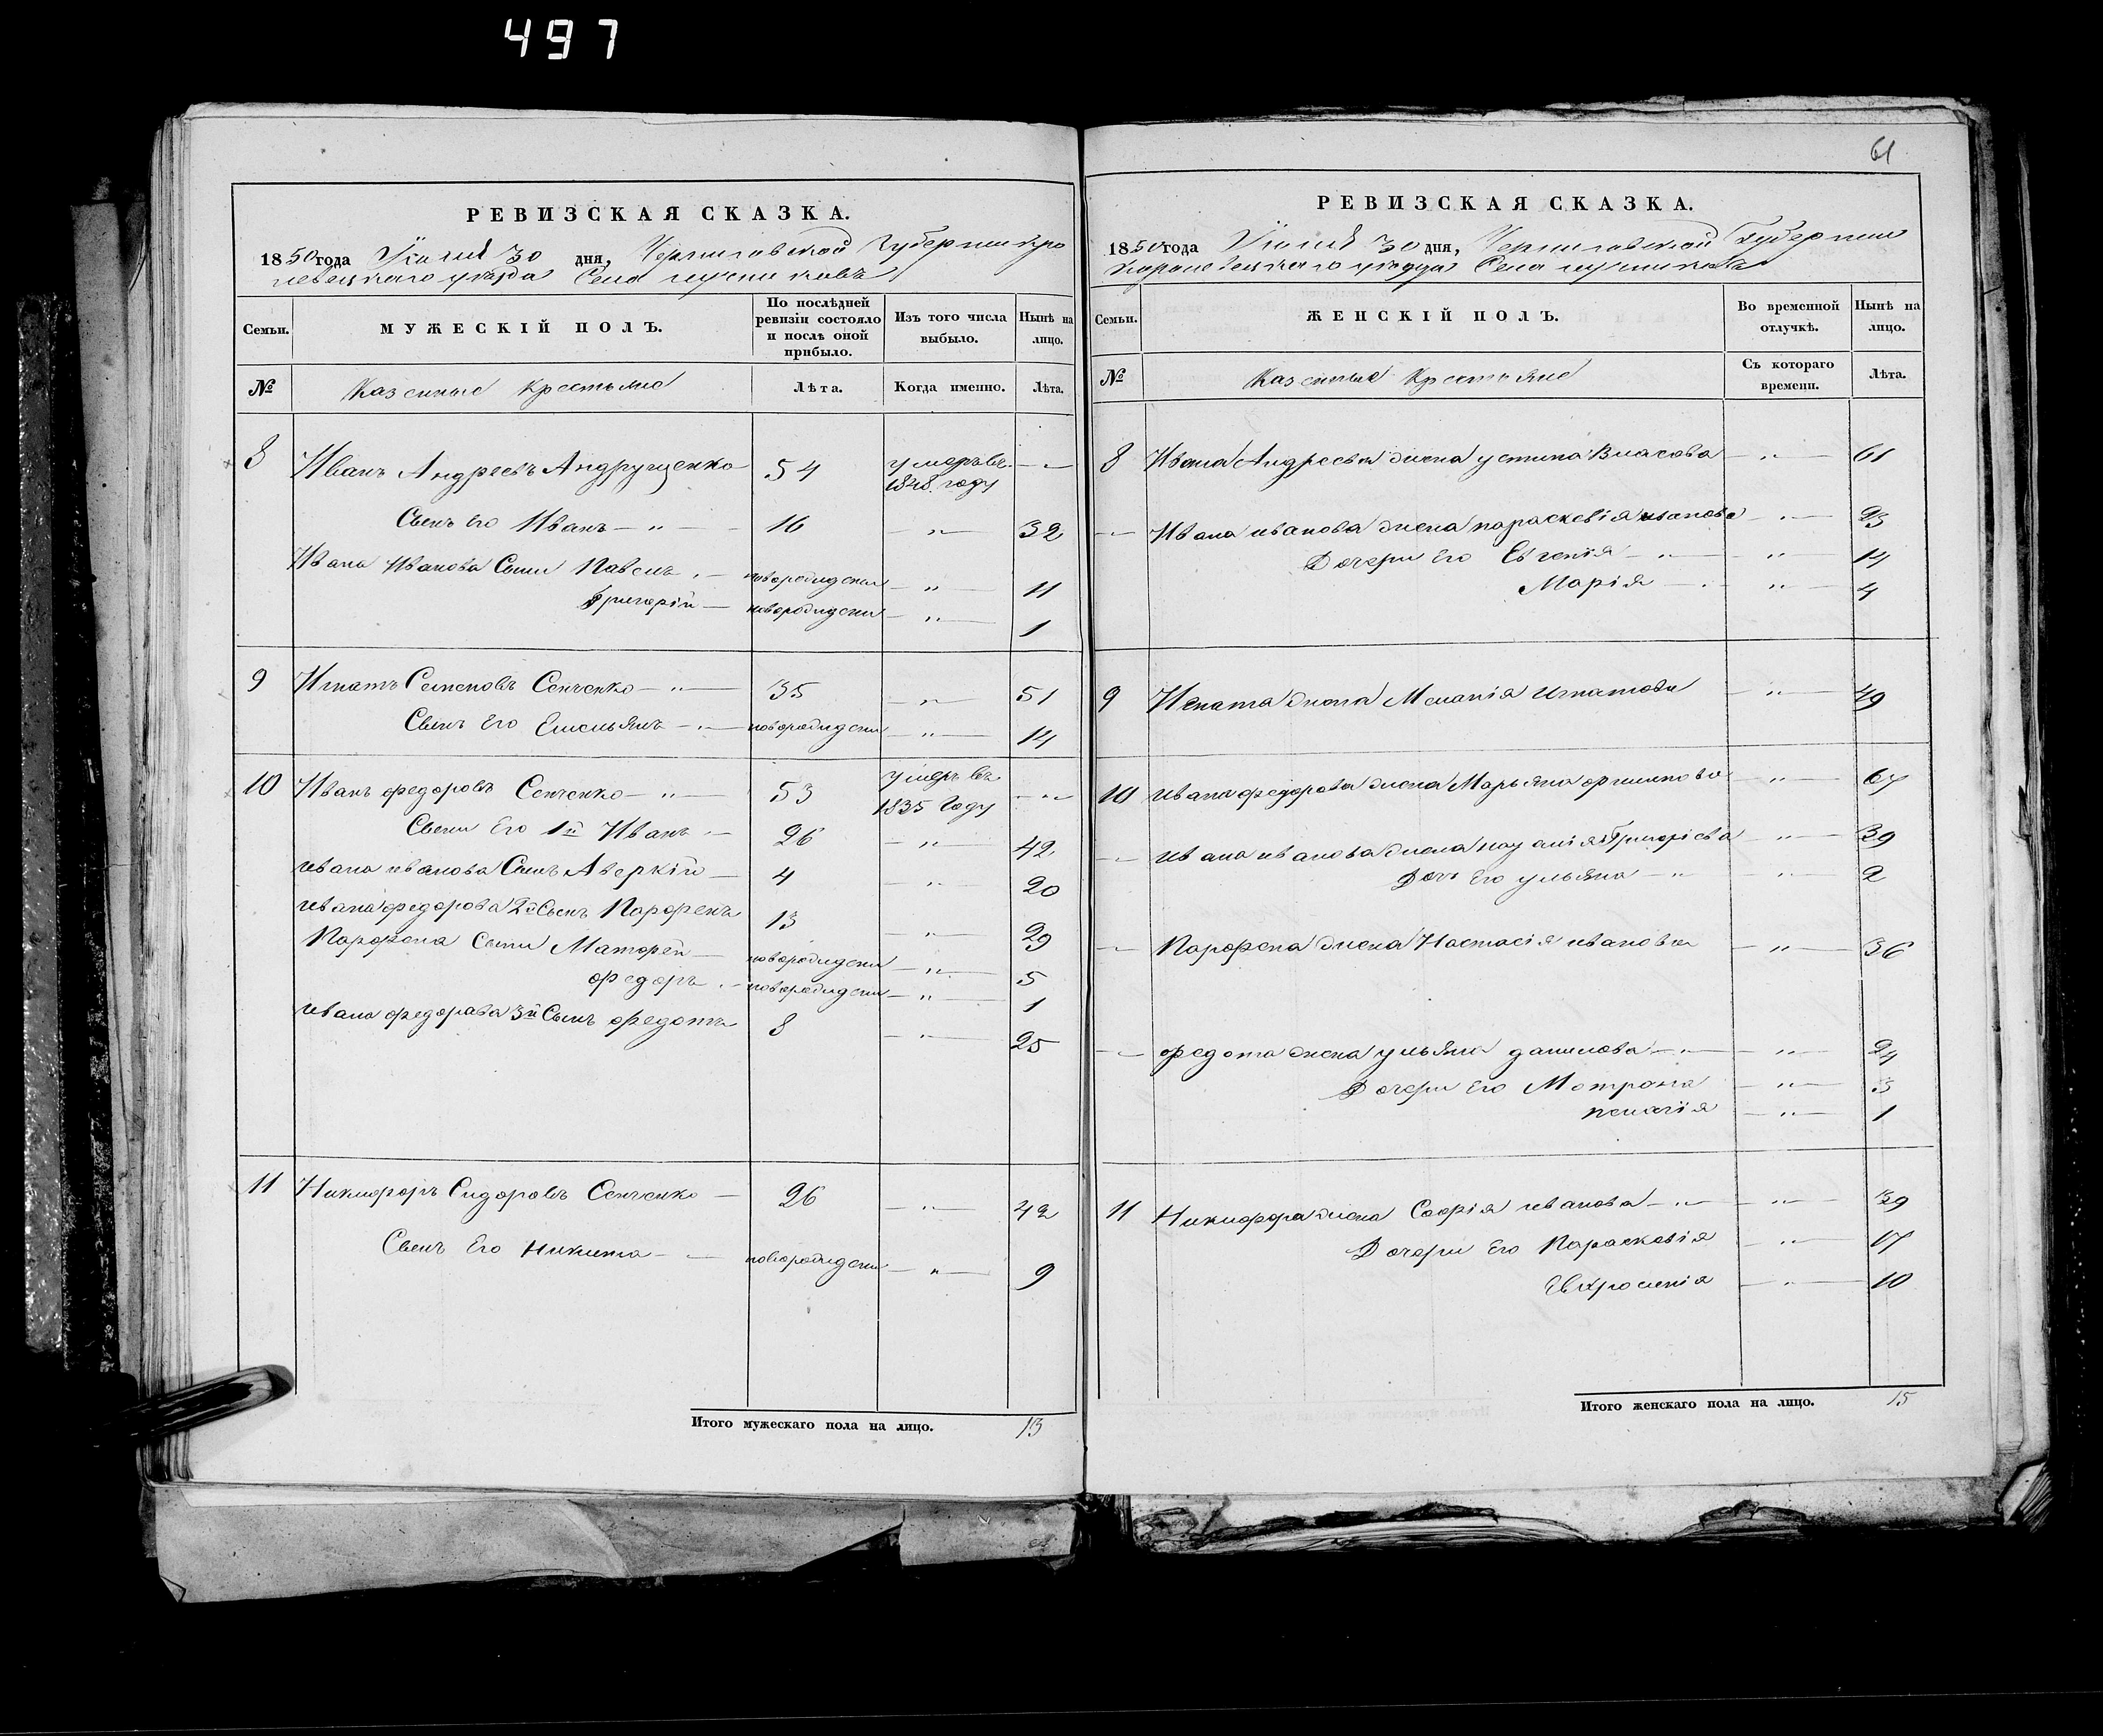 497
РЕВИЗСКАЯ СКАЗКА.
1850 года Іюля 30 дня, Черниговской Губерніи Кро
левецкаго уезда Села
Семьи.
МУЖЕСКІЙ ПОЛЪ.
По послѣдней ревизіи состояло и послѣ оной прибыло.
Изъ того числа выбыло.
Нынѣ на лицо.
№ Казенные Крестьяне Лѣта. Когда именно. Лѣта.
8 Иванъ Андреевъ Андрущенко 54 умеръ въ 1848 году — „ —
Сынъ его Иванъ — „ — 16 — „ — 32
Ивана Иванова Сыни Павелъ — новорожденн — „ — 11
Григорій — новорожденн — „ — 1
9 Игнатъ Семеновъ Сенченко — „ — 35 — „ — 51
Сынъ Его Емельянъ — „ — новорожденн — „ — 14
10 Иванъ федоровъ Сенченко — „ — 53 умеръ въ 1835 Году — „ —
Сыни Его 1й Иванъ — 26 — „ — 42
ивана иванова Сынъ Аверкій — 4 — „ — 20
ивана федорова 2й Сынъ Парфенъ 13 — „ — 29
Парфена Сыни Матфей — новорожденн — „ — 5
федоръ — новорожденн — „ — 1
ивана федорава 3й Сынъ федотъ 8 — „ — 25
11 Никифоръ Сидоровъ Сенченко — 26 — „ — 42
Сынъ Его Никита — новорожденн — „ — 9
Итого мужескаго пола на лицо. 13
61
РЕВИЗСКАЯ СКАЗКА.
1850 года Іюля 30 дня, Черниговской Губерніи
уезда Села
Семьи.
ЖЕНСКІЙ ПОЛЪ.
Во временной отлучкѣ.
Нынѣ на лицо.
№ Казенные Крестьяне Съ котораго времени. Лѣта.
8 Ивана Андреева жена устина Власова — „ — 61
— Ивана иванова жена параскевія иванова — „ — 23
Дочери его Евгенія — „ — „ — 14
Марія — „ — 4
9 Игната жена Меланія Игнатова — „ — 49
10 ивана федорова жена Марьяна — „ — 67
— ивана иванова жена Григоріева — „ — 39
Дочь Его ульяна — „ — „ — 2
— Парфена жена Настасія ивановна — „ — 36
— федота жена ульяна данилова — „ — „ — 24
Дочери его Мотрона — „ — 3
пелагія — „ — 1
11 Никифора жена Софія иванова — „ — „ — 39
Дочери Его Параскевія — „ — 17
Евфросинія — „ — 10
Итого женскаго пола на лицо. 15